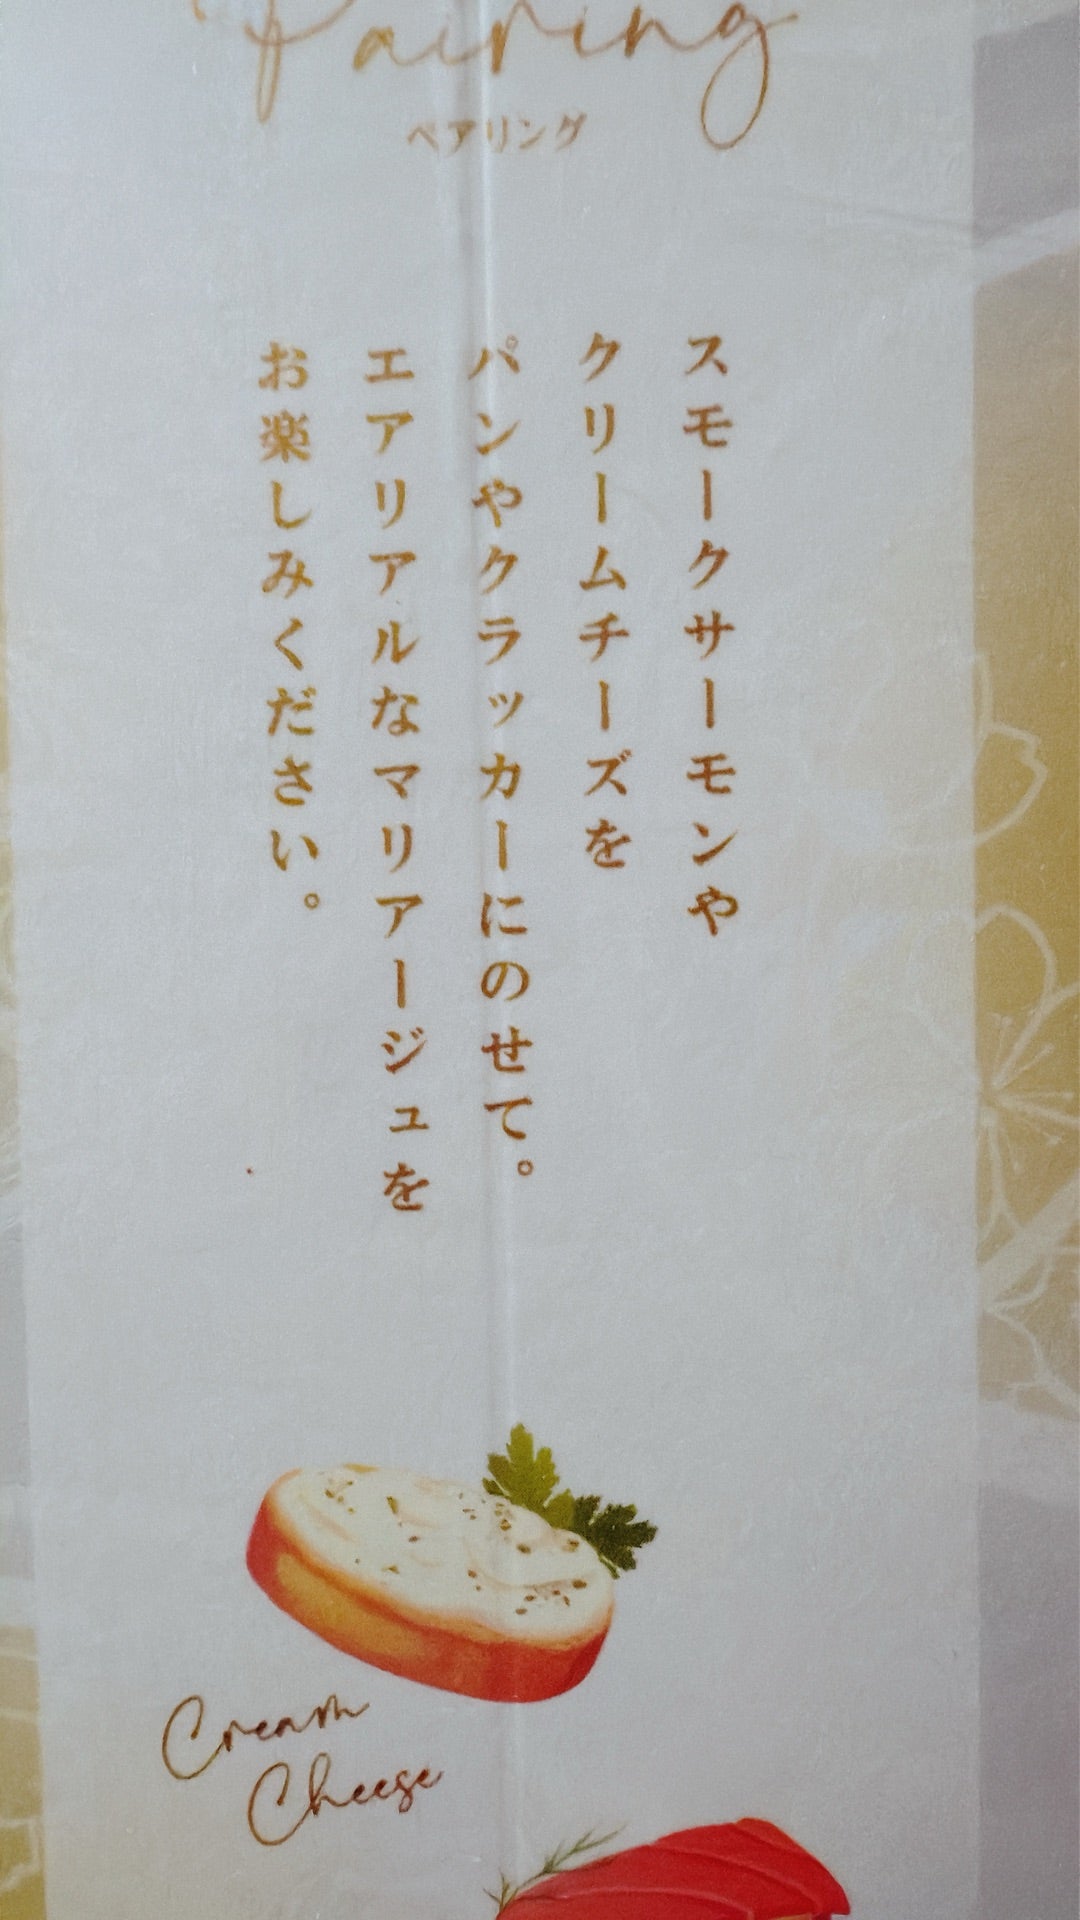 Pairing
ペアリング
スモークサーモンや
クリームチーズを
パンやクラッカーにのせて。
エアリアルなマリアージュを
お楽しみください。
Cream
Cheese